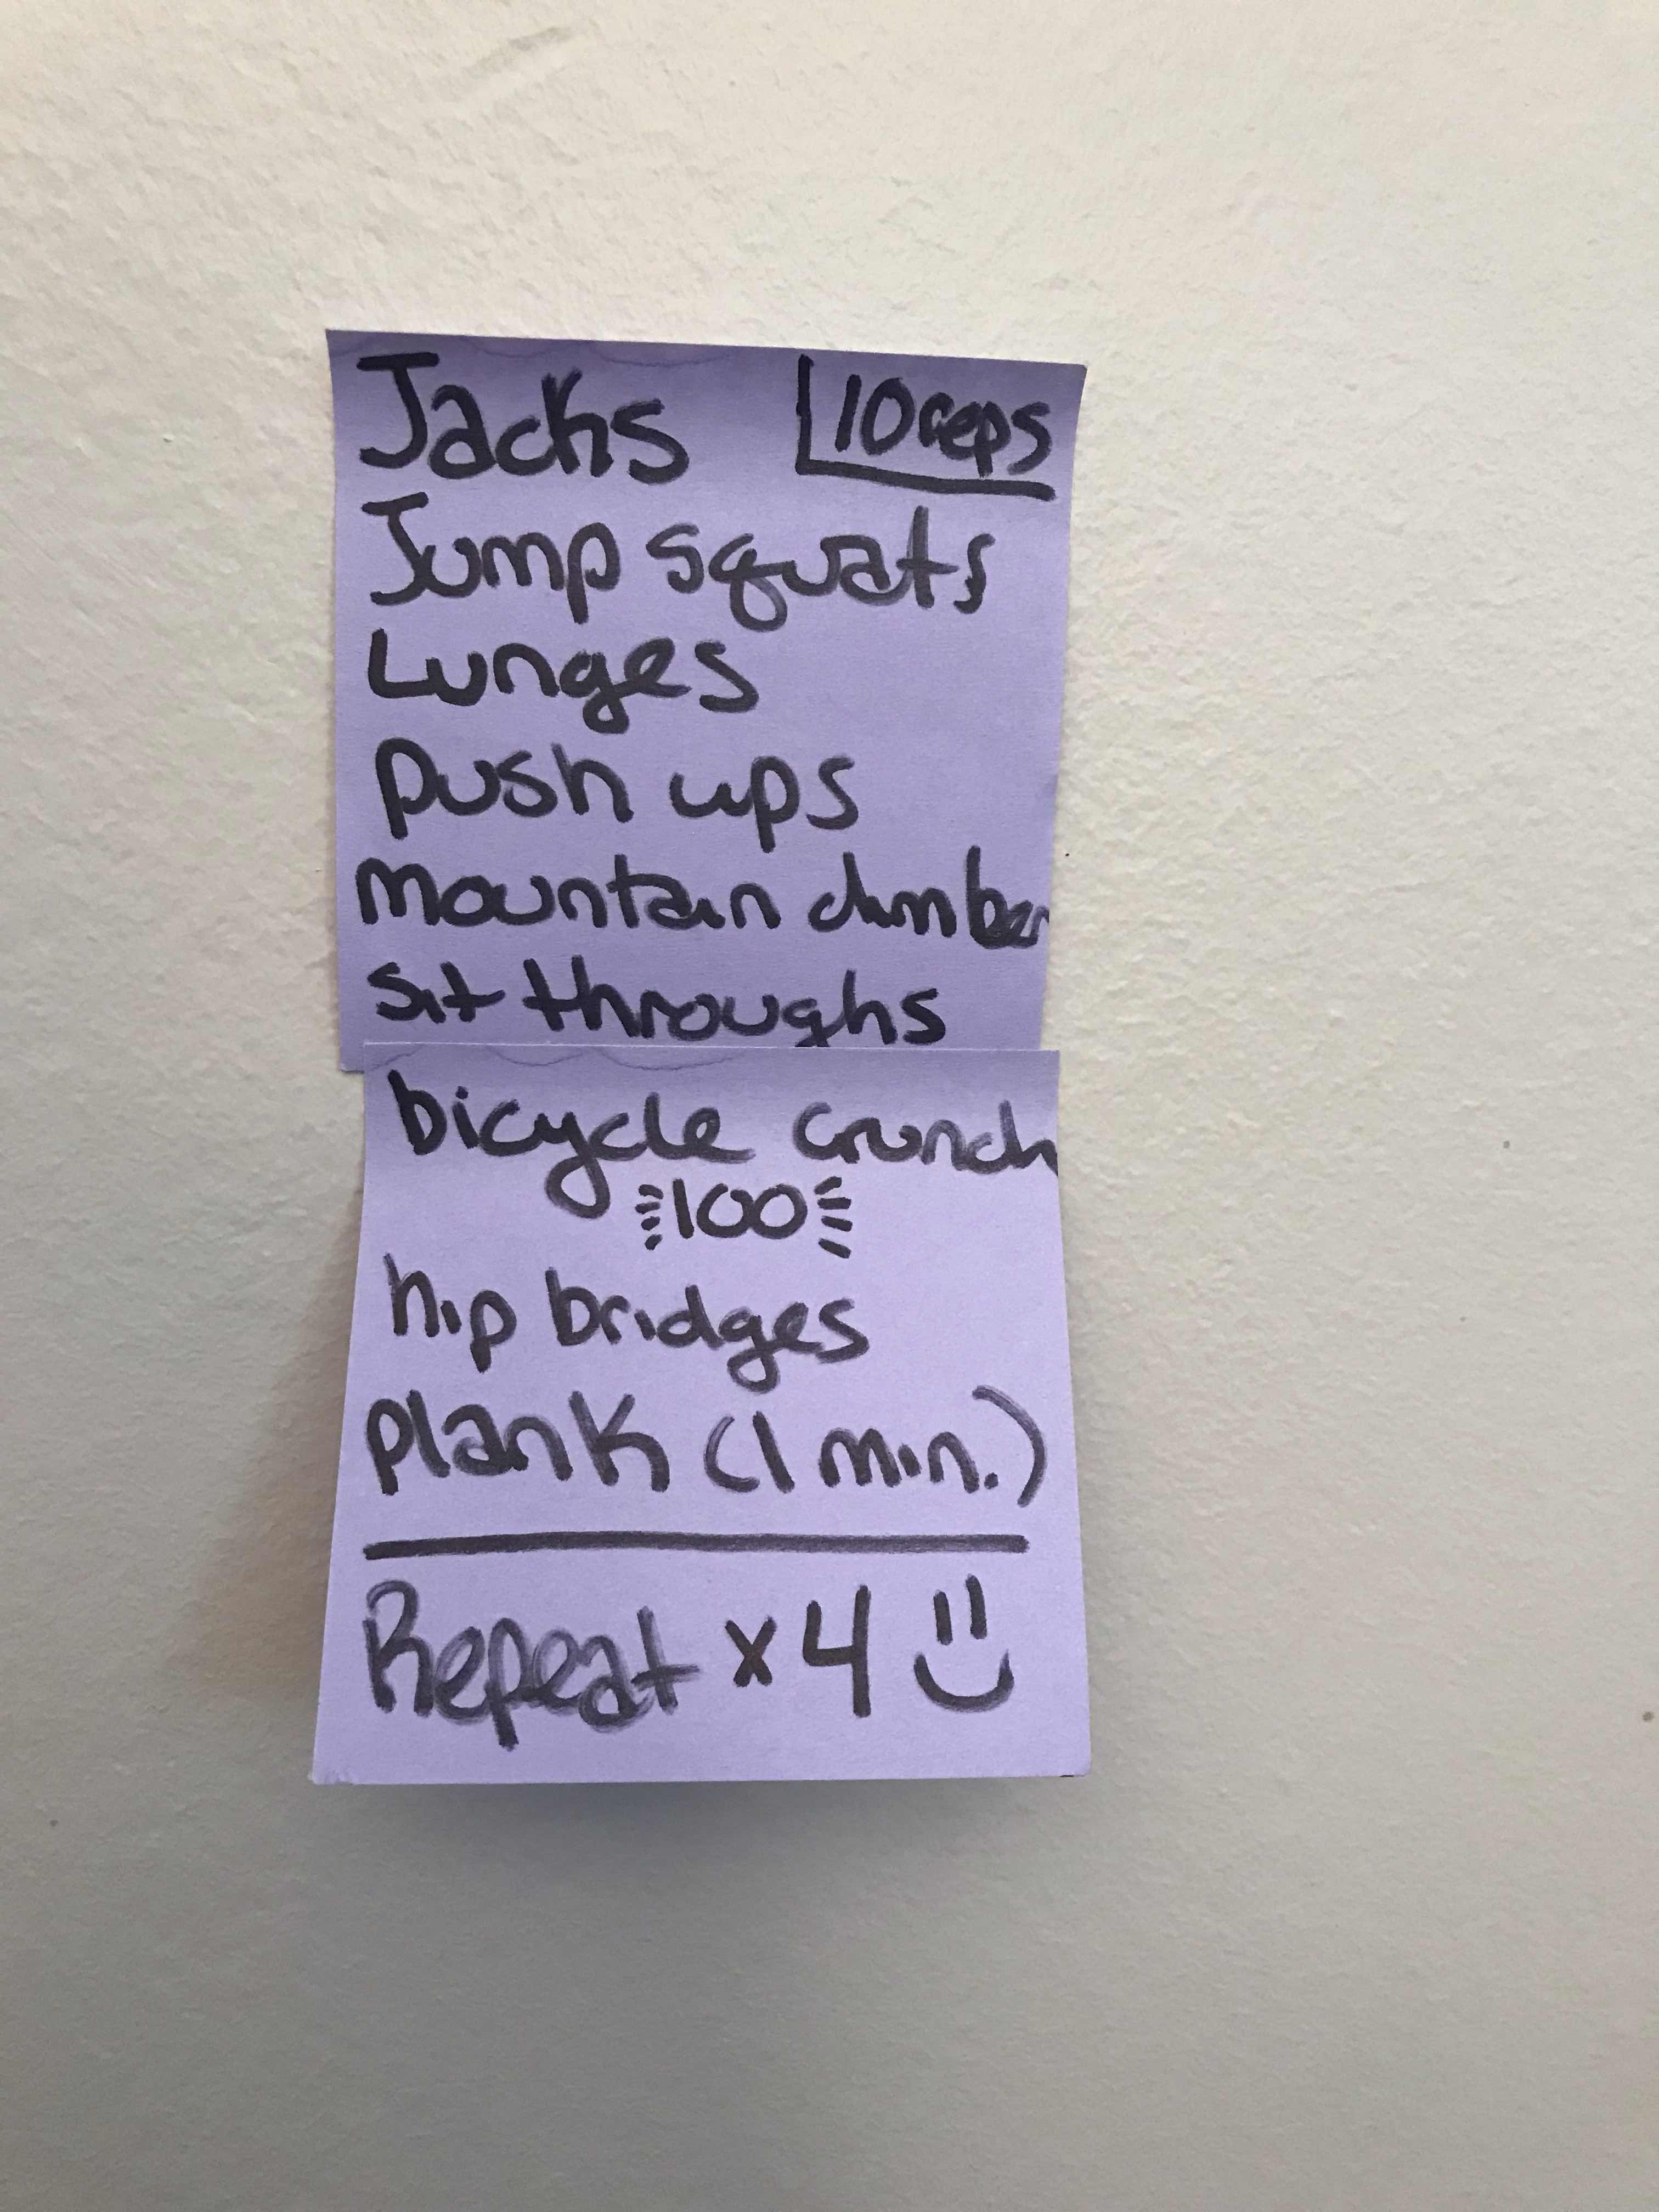 Jacks 10 reps
Jump squats
Lunges
push ups
mountain climber
sit throughs
bicycle crunch
100
hip bridges
plank (1 min.)
Repeat x 4